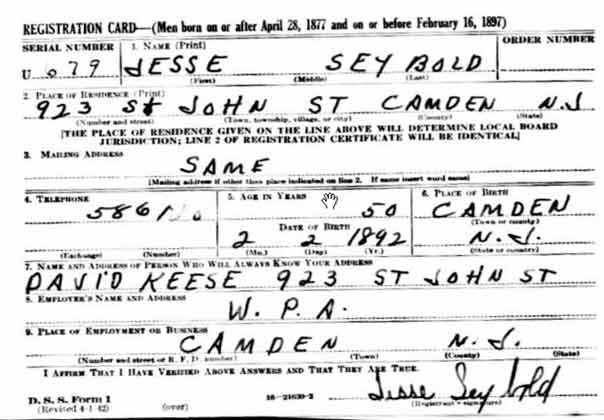 REGISTRATION CARD—(Men born on or after April 28, 1877 and on or before February 16, 1897)
SERIAL NUMBER 1. NAME (Print) ORDER NUMBER
U 679 JESSE SEYBOLD
(First) (Middle) (Last)
2. PLACE OF RESIDENCE (Print)
923 St JOHN ST CAMDEN N.J
(Number and street) (Town, township, village, or city) (County) (State)
[THE PLACE OF RESIDENCE GIVEN ON THE LINE ABOVE WILL DETERMINE LOCAL BOARD
JURISDICTION; LINE 2 OF REGISTRATION CERTIFICATE WILL BE IDENTICAL]
3. MAILING ADDRESS
SAME
[Mailing address if other than place indicated on line 2. If same insert word same]
4. TELEPHONE 5. AGE IN YEARS 6. PLACE OF BIRTH
50 CAMDEN
DATE OF BIRTH (Town or county)
2 2 1892 N.J.
(Exchange) (Number) (Mo.) (Day) (Yr.) (State or country)
7. NAME AND ADDRESS OF PERSON WHO WILL ALWAYS KNOW YOUR ADDRESS
DAVID KEESE 923 ST JOHN ST
8. EMPLOYER'S NAME AND ADDRESS
W. P. A.
9. PLACE OF EMPLOYMENT OR BUSINESS
CAMDEN N. J.
(Number and street or R. F. D. number) (Town) (County) (State)
I AFFIRM THAT I HAVE VERIFIED ABOVE ANSWERS AND THAT THEY ARE TRUE.
D. S. S. Form 1 16—21630-2 Jesse Seybold
(Revised 4-1-42) (over) (Registrant's signature)